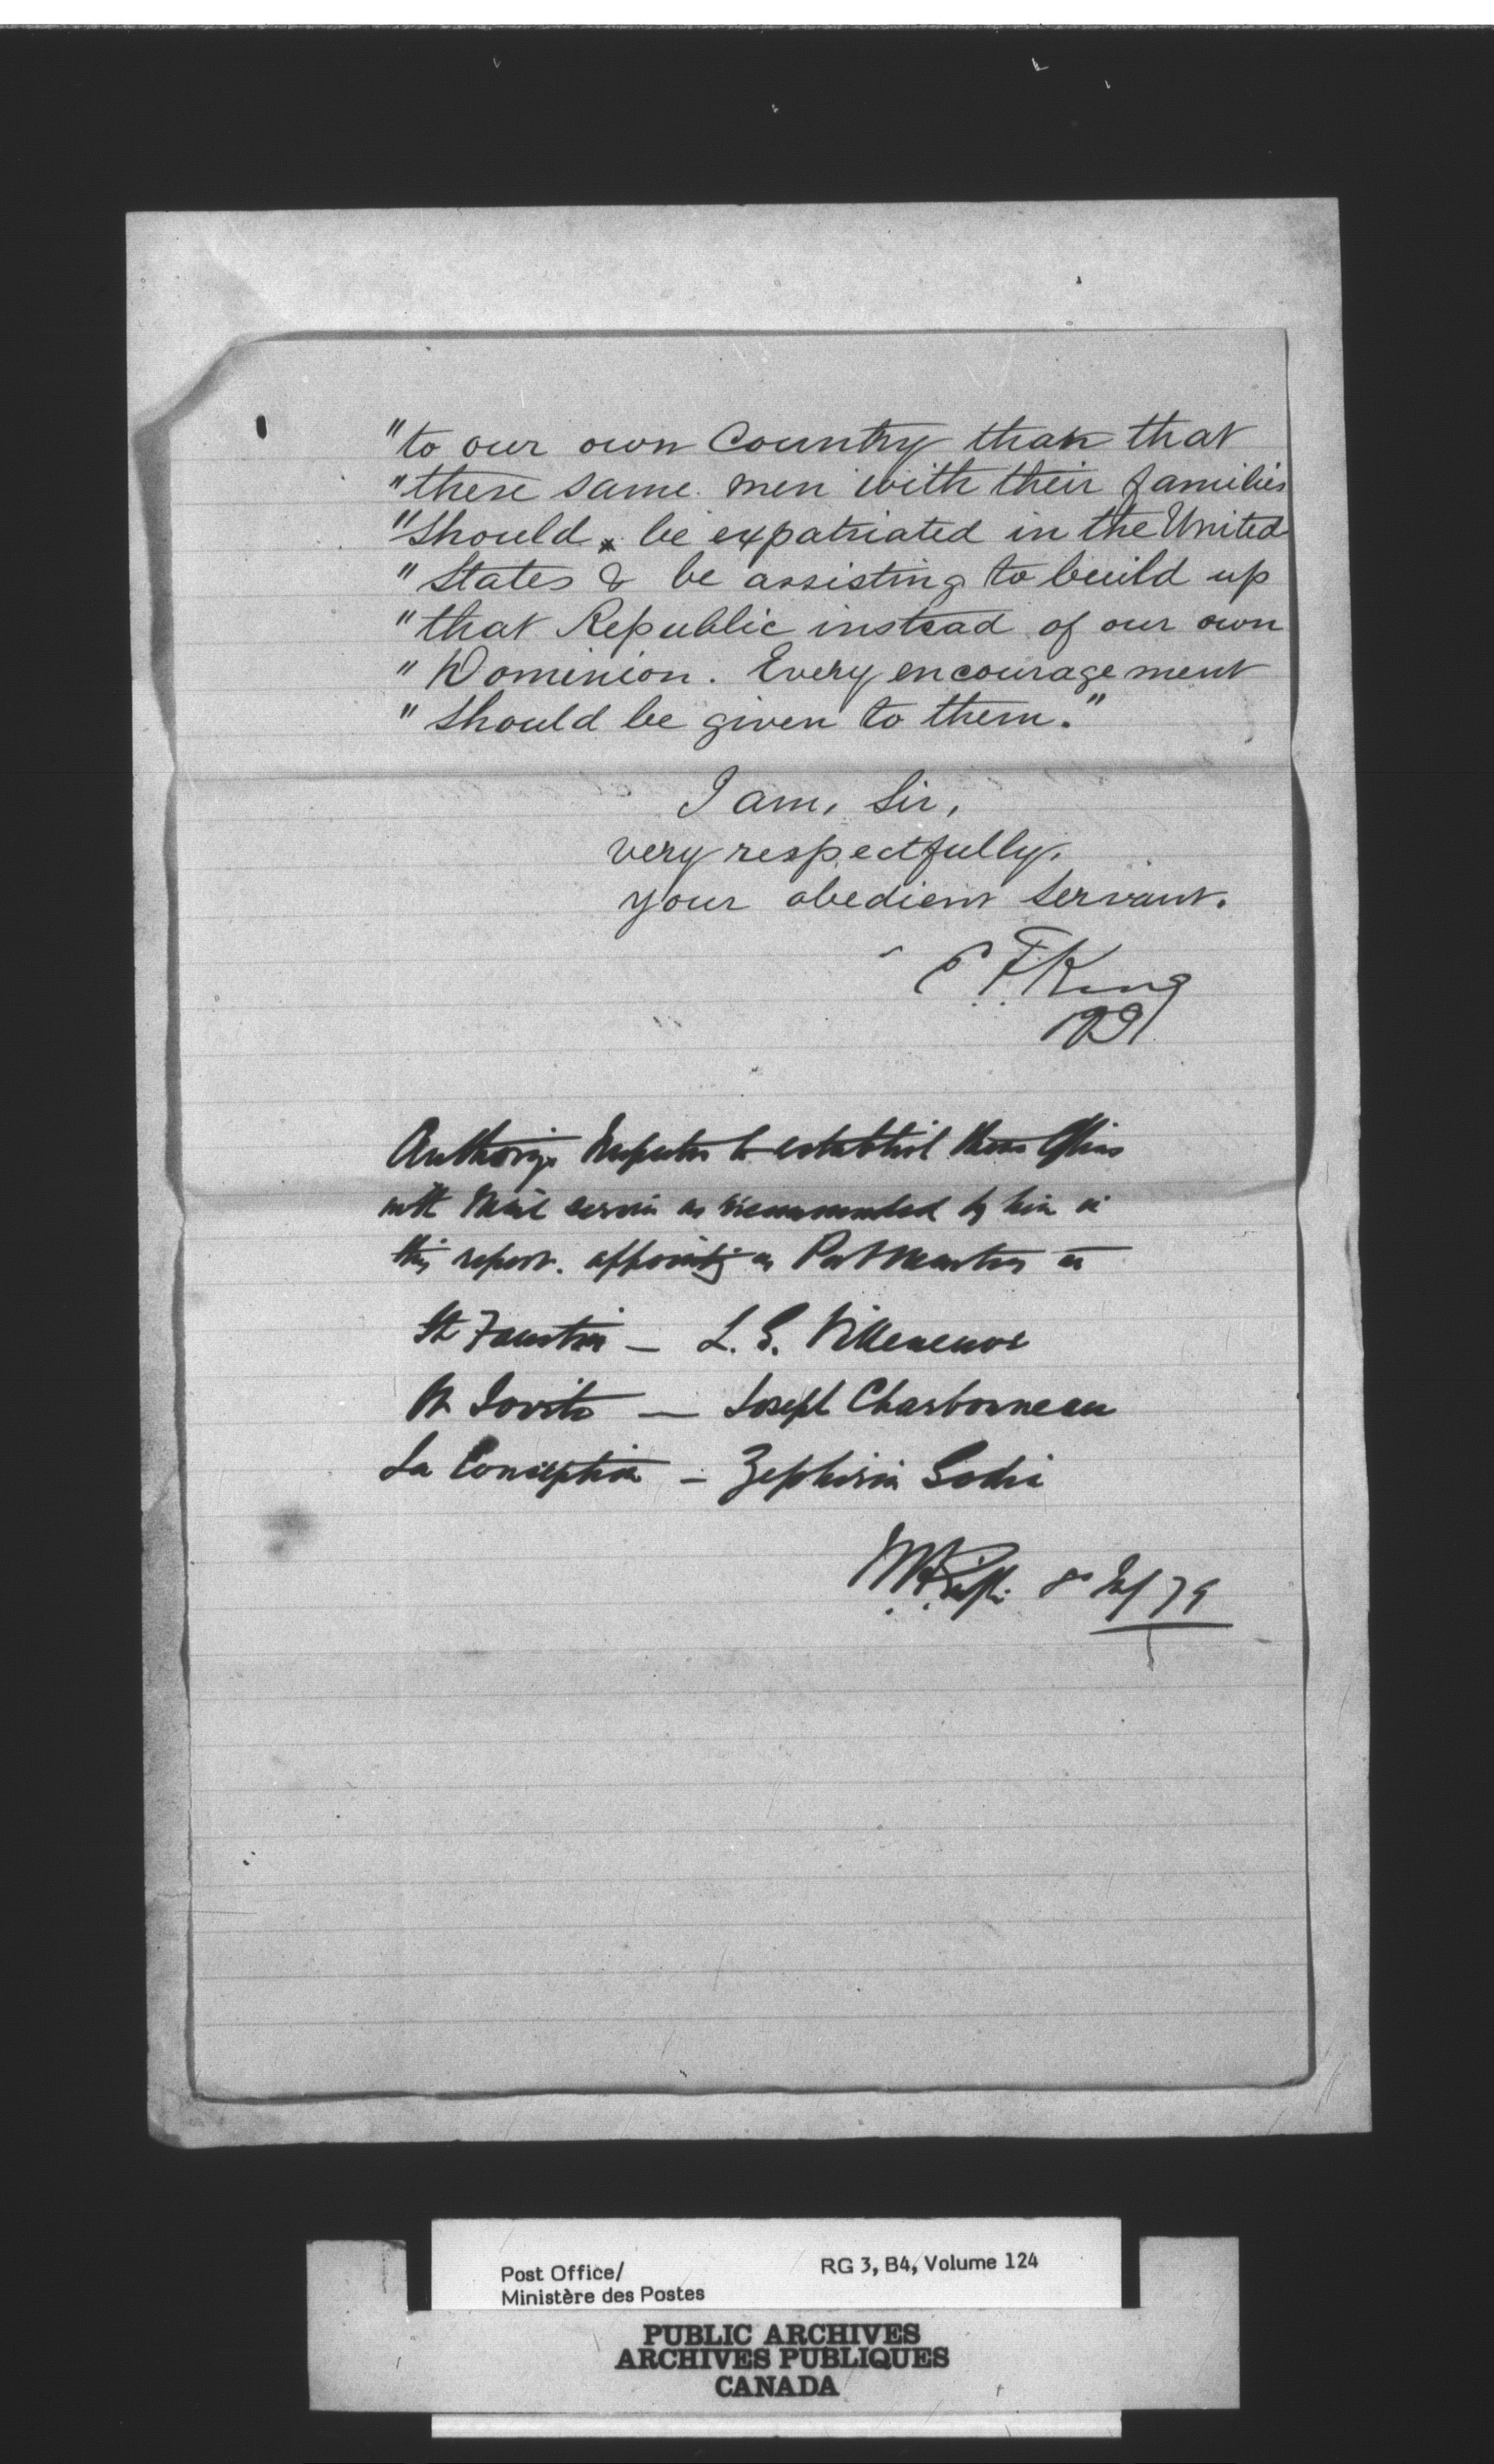 "to our own Country than that
"these same men with their families
"should be expatriated in the United
"States & be assisting to build up
"that Republic instead of our own
"Dominion. Every encouragement
"should be given to them."
I am, Sir,
very respectfully,
your obedient servant.
E F King
Authorize Inspector to establish these Offices
with Mail service as recommended by him in
this report. appointing as Postmasters at
St Faustin — L. G. Villeneuve
St Jovite — Joseph Charbonneau
La Conception — Zephirin Godin
8 79
Post Office/
Ministère des Postes
RG 3, B4, Volume 124
PUBLIC ARCHIVES
ARCHIVES PUBLIQUES
CANADA